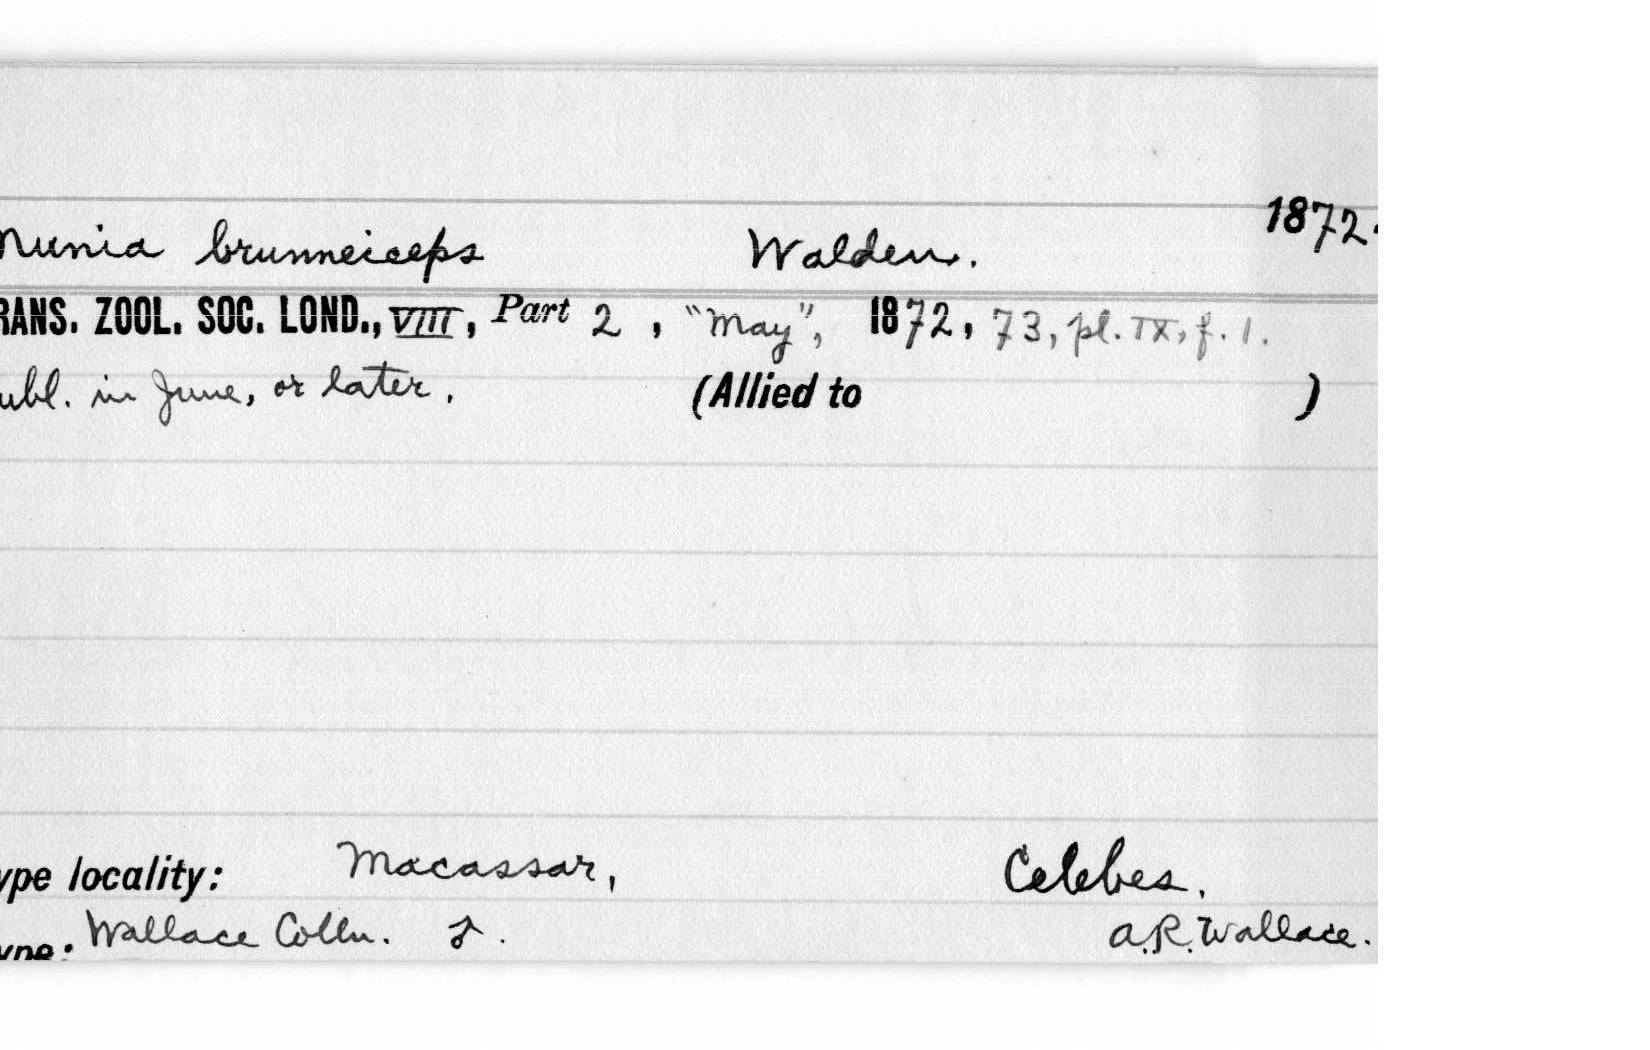 1872.
Munia brunneiceps Walden.
RANS. ZOOL. SOC. LOND., VIII, Part 2, "May", 1872, 73, pl. IX, f. 1.
ubl. in June, or later. (Allied to )
ype locality: Macassar, Celebes.
ype: Wallace Colln. ♂. A.R. Wallace.